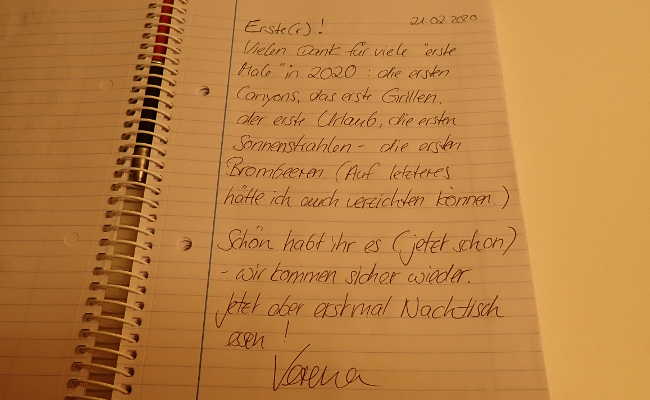 21.02.2020
Erste(r)!
Vielen Dank für viele "erste
Male" in 2020: die ersten
Canyons, das erste Grillen,
der erste Urlaub, die ersten
Sonnenstrahlen - die ersten
Brombeeren (Auf letzteres
hätte ich auch verzichten können.)
Schön habt ihr es (jetzt schon)
- wir kommen sicher wieder.
Jetzt aber erstmal Nachtisch
essen!
Verena